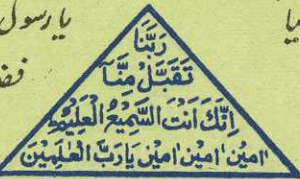 یا رسول
رَبَّنَا
تَقَبَّلْ مِنَّا
اِنَّكَ اَنْتَ السَّمِيْعُ الْعَلِيْمُ
اٰمین اٰمین اٰمین یَارَبَّ الْعٰلَمِیْنَ